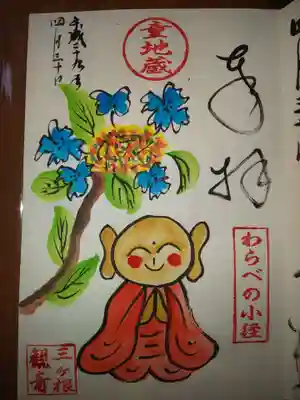 奉拝
童地蔵
平成二十九年
四月三十日
わらべの小径
三ヶ根
観音